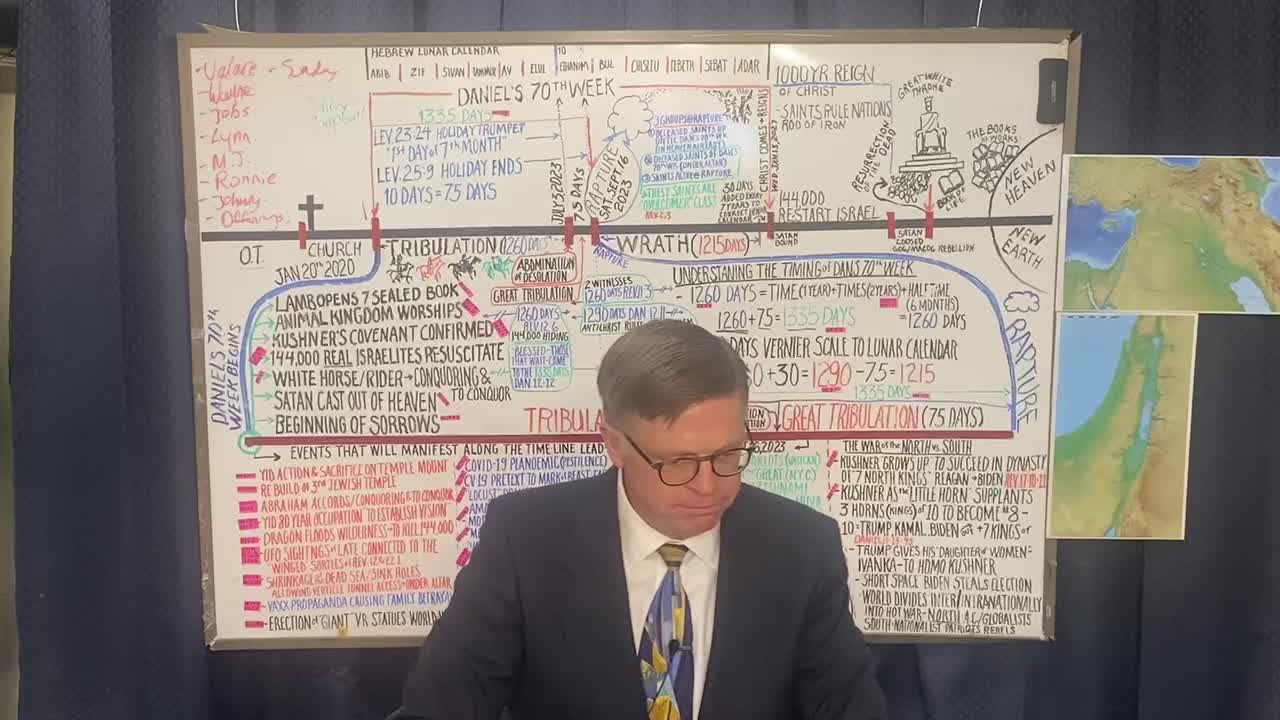 HEBREW LUNAR CALENDAR
ABIB ZIF SIVAN TAMMUZ AV ELUL ETHANIM BUL CHISLEU TEBETH SEBAT ADAR
10
- Sunday
- Wayne
- Jobs
- Lynn
- M.J.
- Ronnie
- Johnny
- Offerings
DANIEL'S 70TH WEEK
1335 DAYS
LEV. 23:24 HOLIDAY TRUMPET
"1ST DAY OF 7TH MONTH"
LEV. 25:9 HOLIDAY ENDS
10 DAYS = 7.5 DAYS
JULY 2023
7.5 DAYS
RAPTURE
SAT SEPT. 16
2023
3 GROUPS @ RAPTURE
① DECEASED SAINTS UP
UNTIL DAN'S 70TH WK
(IN HEAVEN ALREADY)
② DECEASED SAINTS OF DAN'S
70TH WK (UNDER ALTAR)
③ SAINTS ALIVE @ RAPTURE
*THESE SAINTS ARE
"OVERCOMER" CLASS
REV. 2,3
30 DAYS
ADDED EVERY
7 YEARS TO
CORRECT LUNAR
CALENDAR
CHRIST COMES + REIGNS
WED JAN 13, 2027
1000 YR REIGN
OF CHRIST
- SAINTS RULE NATIONS
ROD OF IRON
144,000
RESTART ISRAEL
RESURRECTION
OF THE DEAD
GREAT WHITE
THRONE
THE BOOKS
(WORKS)
BOOK OF
LIFE
NEW
HEAVEN
NEW
EARTH
O.T.
CHURCH
JAN 20TH 2020
TRIBULATION (1260 DAYS)
WRATH (1215 DAYS)
SATAN
BOUND
SATAN
LOOSED
GOG/MAGOG REBELLION
RAPTURE
DANIEL'S 70TH
WEEK BEGINS
LAMB OPENS 7 SEALED BOOK
ANIMAL KINGDOM WORSHIPS
KUSHNER'S COVENANT CONFIRMED
144,000 REAL ISRAELITES RESUSCITATE
WHITE HORSE/RIDER → CONQUORING &
TO CONQUOR
SATAN CAST OUT OF HEAVEN
BEGINNING OF SORROWS
ABOMINATION
OF DESOLATION
GREAT TRIBULATION
1260 DAYS
REV. 12:6
144,000 HIDING
"BLESSED - THOSE
THAT WAIT - COME
TO THE 1335 DAYS
DAN 12:12
2 WITNESSES
1260 DAYS REV. 11:3
1290 DAYS DAN 12:11
ANTICHRIST RULES
UNDERSTANING THE TIMING OF DANS 70TH WEEK
- 1260 DAYS = TIME (1 YEAR) + TIMES (2 YEARS) + HALF TIME
(6 MONTHS)
1260 + 75 = 1335 DAYS
= 1260 DAYS
DAYS VERNIER SCALE TO LUNAR CALENDAR
0 + 30 = 1290 - 75 = 1215
1335 DAYS
RAPTURE
TRIBULA
GREAT TRIBULATION (75 DAYS)
EVENTS THAT WILL MANIFEST ALONG THE TIME LINE LEAD
2023
YID ACTION & SACRIFICE ON TEMPLE MOUNT
RE BUILD OF 3RD JEWISH TEMPLE
ABRAHAM ACCORDS/CONQUORING & TO CONQUOR
YID 80 YEAR OCCUPATION TO ESTABLISH VISION
DRAGON FLOODS WILDERNESS - TO KILL 144,000
UFO SIGHTINGS OF LATE CONNECTED TO THE
SHRINKAGE OF THE DEAD SEA/SINK HOLES
ALLOWING VERTICLE TUNNEL ACCESS - UNDER ALTAR
VAXX PROPAGANDA CAUSING FAMILY BETRAYA
ERECTION OF "GIANT" VR STATUES WORLD
COVID-19 PLANDEMIC (PESTILENCE)
CV19 PRETEXT TO MARK OF BEAST
LOCUST
HARLOTS (VATICAN)
GREAT (N.Y.C)
TSUNAMI
THE WAR OF THE NORTH VS. SOUTH
KUSHNER GROWS UP TO SUCCEED IN DYNASTY
OF 7 NORTH KINGS' REAGAN → BIDEN REV. 17:10-11
KUSHNER AS THE "LITTLE HORN" SUPPLANTS
3 HORNS (KINGS) OF 10 TO BECOME #8 -
10 = TRUMP, KAMAL, BIDEN + 7 KINGS OF
- TRUMP GIVES HIS "DAUGHTER OF WOMEN"
IVANKA - TO HOMO KUSHNER
- SHORT SPACE BIDEN STEALS ELECTION
- WORLD DIVIDES INTER/INTRANATIONALLY
INTO HOT WAR - NORTH A.C./GLOBALISTS
SOUTH - NATIONALIST PATRIOTS REBELS